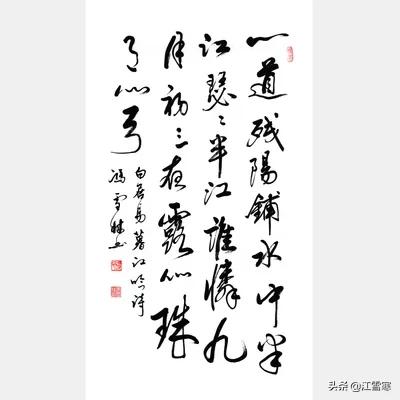 一道残陽鋪水中半
江瑟々半江誰憐九
月初三夜露似珠
月似弓
白居易暮江吟詩
馮雪书
头条 @江雪寒